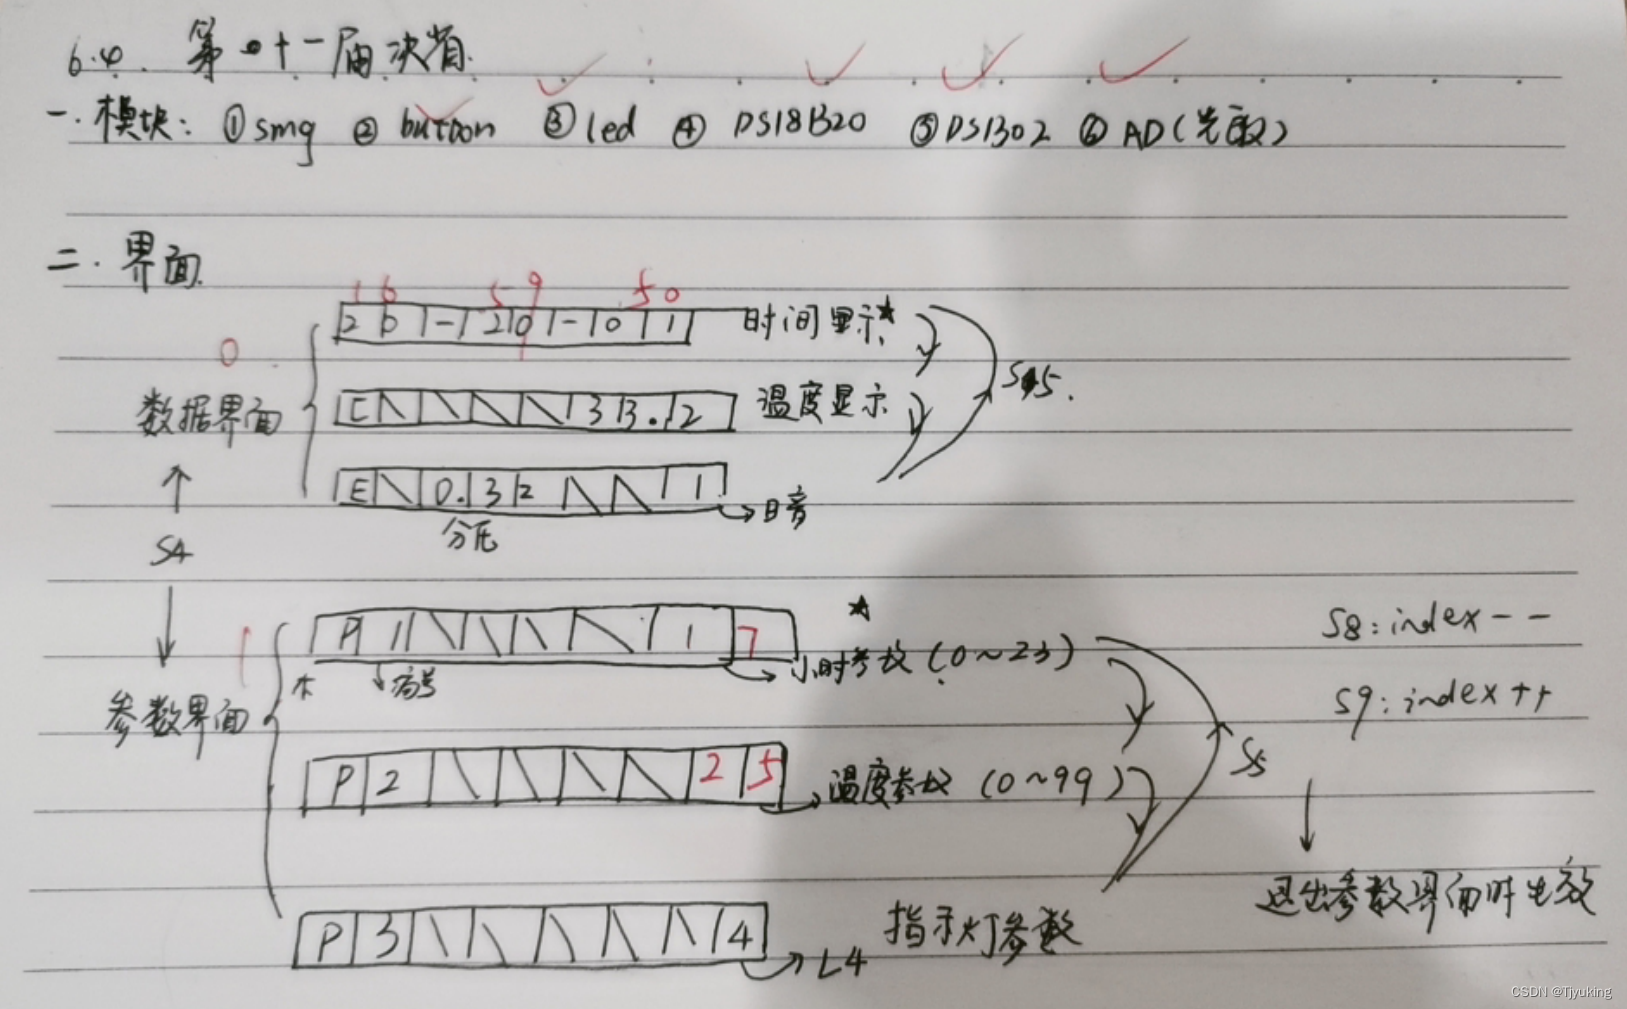 6.4. 第十一届决赛.
一. 模块: ①smg ②button ③led ④DS18B20 ⑤DS1302 ⑥AD(光敏)
二. 界面.
1 6 5 9 5 0
2 0 - 2 0 - 0 1 时间显示★
0
数据界面
C 3 3. 2 温度显示
S5.
E 0. 3 2 1
分压
S4
P 1 1 7 ★
小时参数 (0~23)
S8: index--
1
参数界面
S9: index++
P 2 2 5 温度参数 (0~99)
S5
退出参数界面时生效
P 3 4 指示灯参数
L4
CSDN @Tjyuking